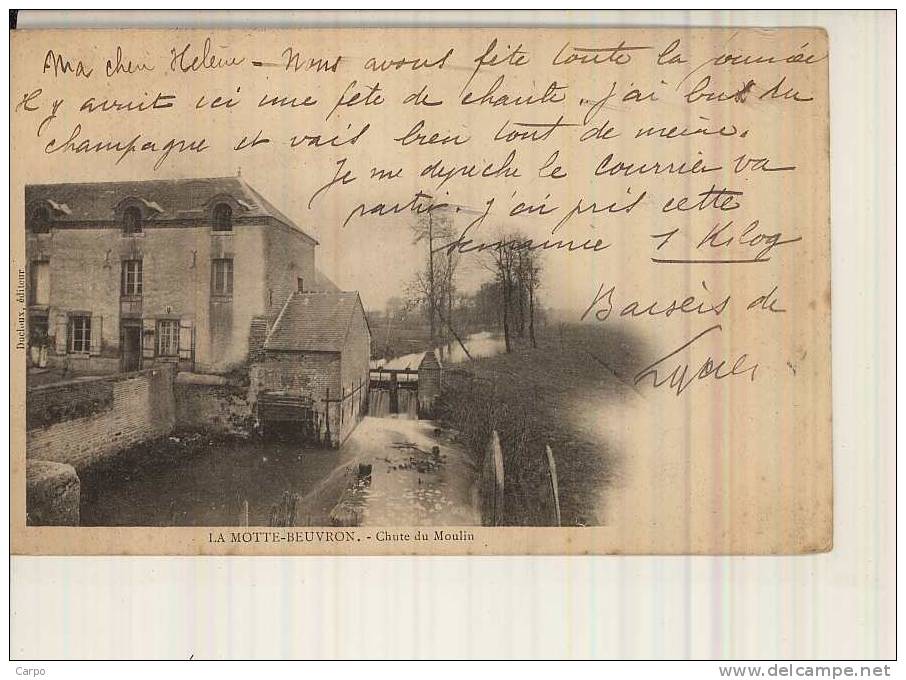 Ma chere Helène - Nous avons fète toute la journée
Il y avait ici une fête de charite. J'ai bu du
champagne et vais bien tout de meme.
Je me depêche le courrier va
partir. J'ai pris cette
semaine 1 Kilog
Baisers de
Ducloux, éditeur
LA MOTTE-BEUVRON. - Chute du Moulin
Carpo
www.delcampe.net